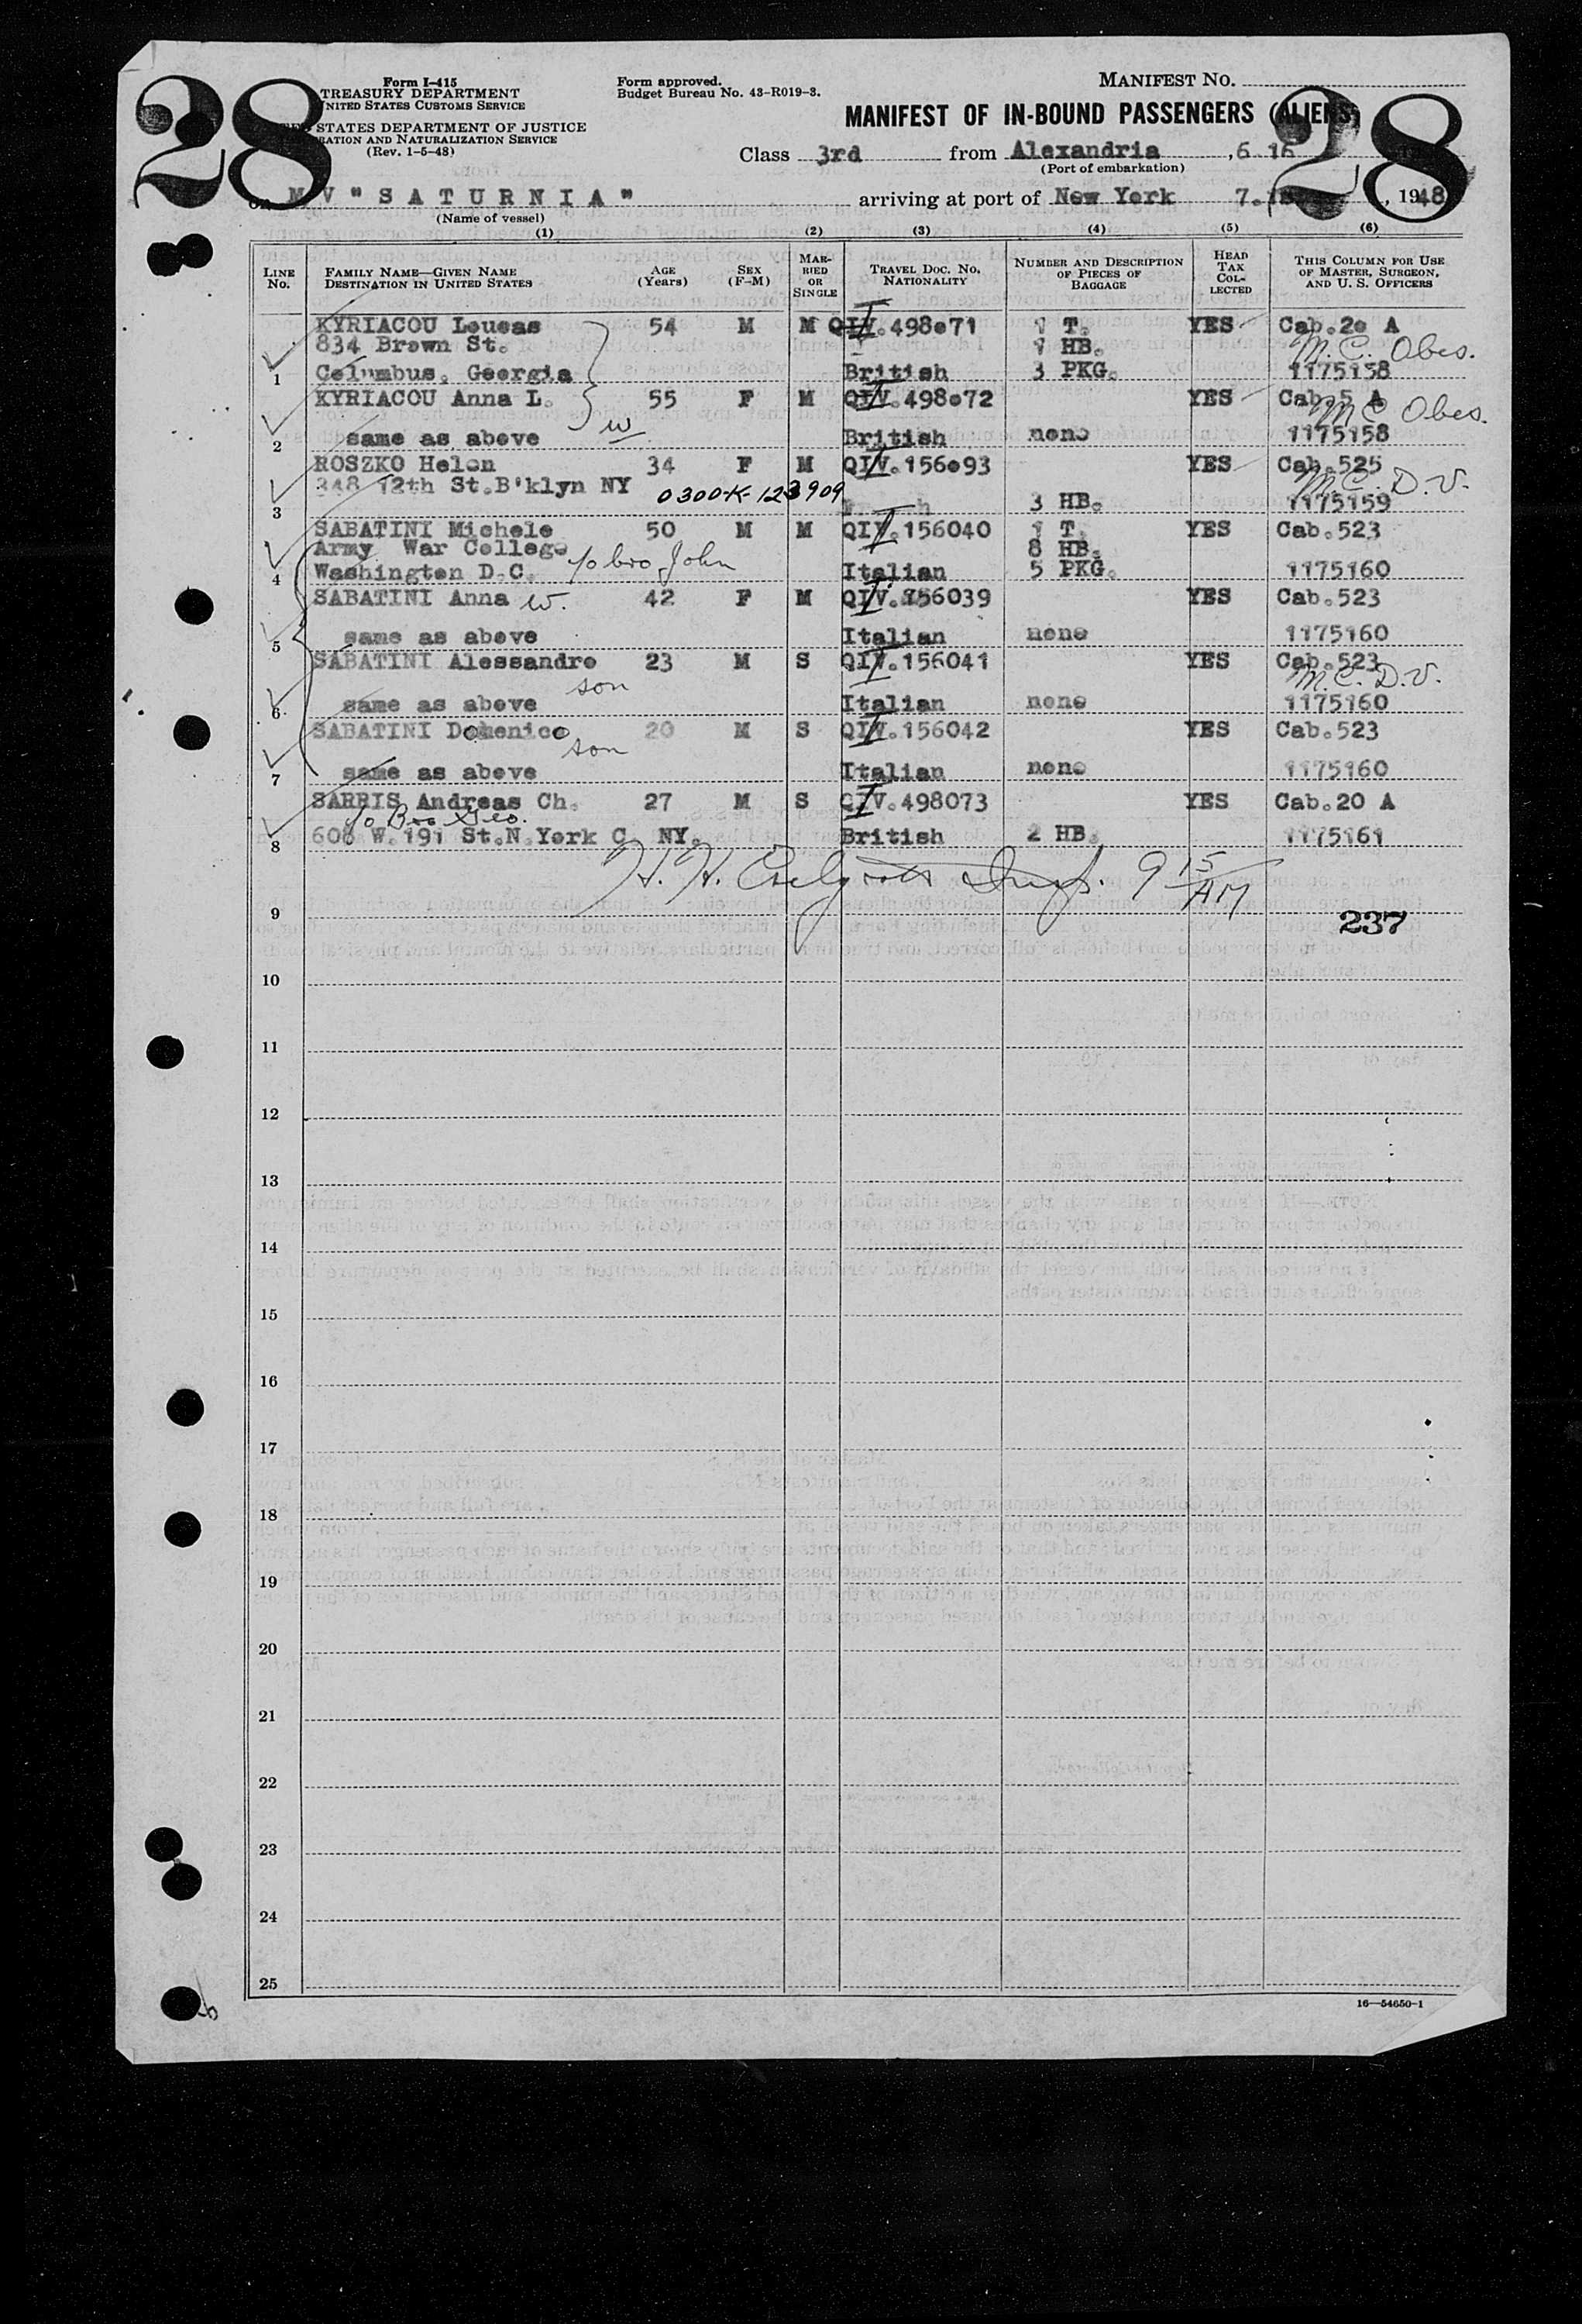 28
28
Form I-415
TREASURY DEPARTMENT
UNITED STATES CUSTOMS SERVICE
STATES DEPARTMENT OF JUSTICE
AND NATURALIZATION SERVICE
(Rev. 1-5-48)
Form approved.
Budget Bureau No. 43-R019-3.
MANIFEST No.
MANIFEST OF IN-BOUND PASSENGERS (ALIENS)
Class 3rd from Alexandria , 6 16
(Port of embarkation)
M V " S A T U R N I A " arriving at port of New York 7. , 1948
(Name of vessel)
(1) (2) (3) (4) (5) (6)
LINE No. FAMILY NAME—GIVEN NAME DESTINATION IN UNITED STATES AGE (Years) SEX (F-M) MARRIED OR SINGLE TRAVEL DOC. NO. NATIONALITY NUMBER AND DESCRIPTION OF PIECES OF BAGGAGE HEAD TAX COLLECTED THIS COLUMN FOR USE OF MASTER, SURGEON, AND U. S. OFFICERS
KYRIACOU Loucas 54 M M QIV.498071 1 T. YES Cab.20 A
834 Brown St. 1 HB. M.C. Obes.
1 Columbus. Georgia British 3 PKG. 1175158
KYRIACOU Anna L. 55 F M QIV.498072 YES Cab.5 A
w M C Obes.
2 same as above British none 1175158
ROSZKO Helen 34 F M QIV.156093 YES Cab.525
348 12th St.B'klyn NY 0300-K-123909 M.C. D.V.
3 3 HB. 1175159
SABATINI Michele 50 M M QIV.156040 1 T. YES Cab.523
Army War College 8 HB.
4 Washington D.C. c/o bro John Italian 5 PKG. 1175160
SABATINI Anna w. 42 F M QIV.156039 YES Cab.523
5 same as above Italian none 1175160
SABATINI Alessandro 23 M S QIV.156041 YES Cab.523
son M.C. D.V.
6 same as above Italian none 1175160
SABATINI Domenico 20 M S QIV.156042 YES Cab.523
son
7 same as above Italian none 1175160
SARRIS Andreas Ch. 27 M S QIV.498073 YES Cab.20 A
c/o Bro Geo.
8 600 W.191 St.N.York C. NY. British 2 HB. 1175161
H. H. Insp. 9 15 AM
9 237
10
11
12
13
14
15
16
17
18
19
20
21
22
23
24
25
16—54650-1